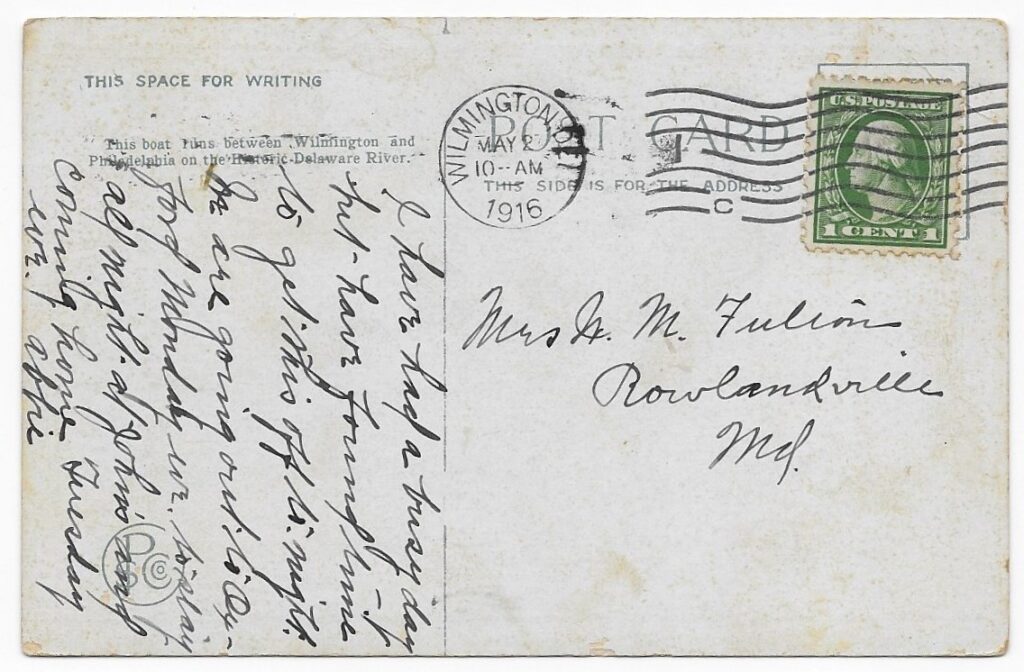 THIS SPACE FOR WRITING
This boat runs between Wilmington and
Philadelphia on the Historic Delaware River.
POST CARD
THIS SIDE IS FOR THE ADDRESS
WILMINGTON, DEL
MAY 2
10-AM
1916
C
U.S. POSTAGE
1 CENT 1
Mrs H. M. Fulton
Rowlandville
Md.
I have had a busy day
but have found time
to get this off to-night.
We are going out to
Monday eve. to stay
all night at John's and
coming home Tuesday
eve. Abbie
P Co